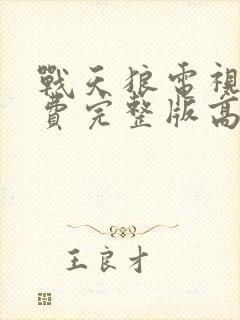 戰天狼電視
費完整版高
王良才